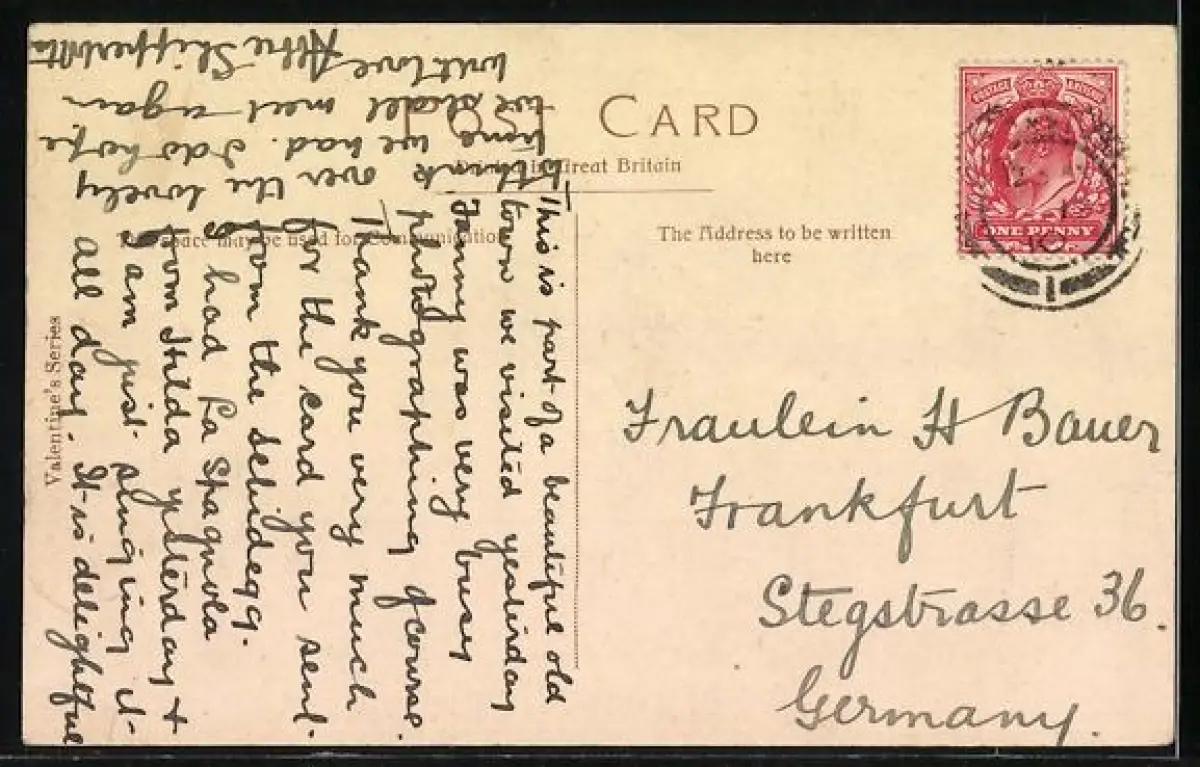 POST CARD
Printed in Great Britain
This space may be used for Communication
The Address to be written
here
Valentine's Series
POSTAGE REVENUE
ONE PENNY
10
1
Fraulein H Bauer
Frankfurt
Stegstrasse 36.
Germany.
This is part of a beautiful old
town we visited yestirday
Fanny was very busy
photographing of course.
Thank you very much
for the card you sent.
from the scheidegg.
I had La Spagnola
from Hilda ysterday &
I am just singing it
all day. It is delightful
to think over the lovely
time we had. I do hope
we shall meet again
with love